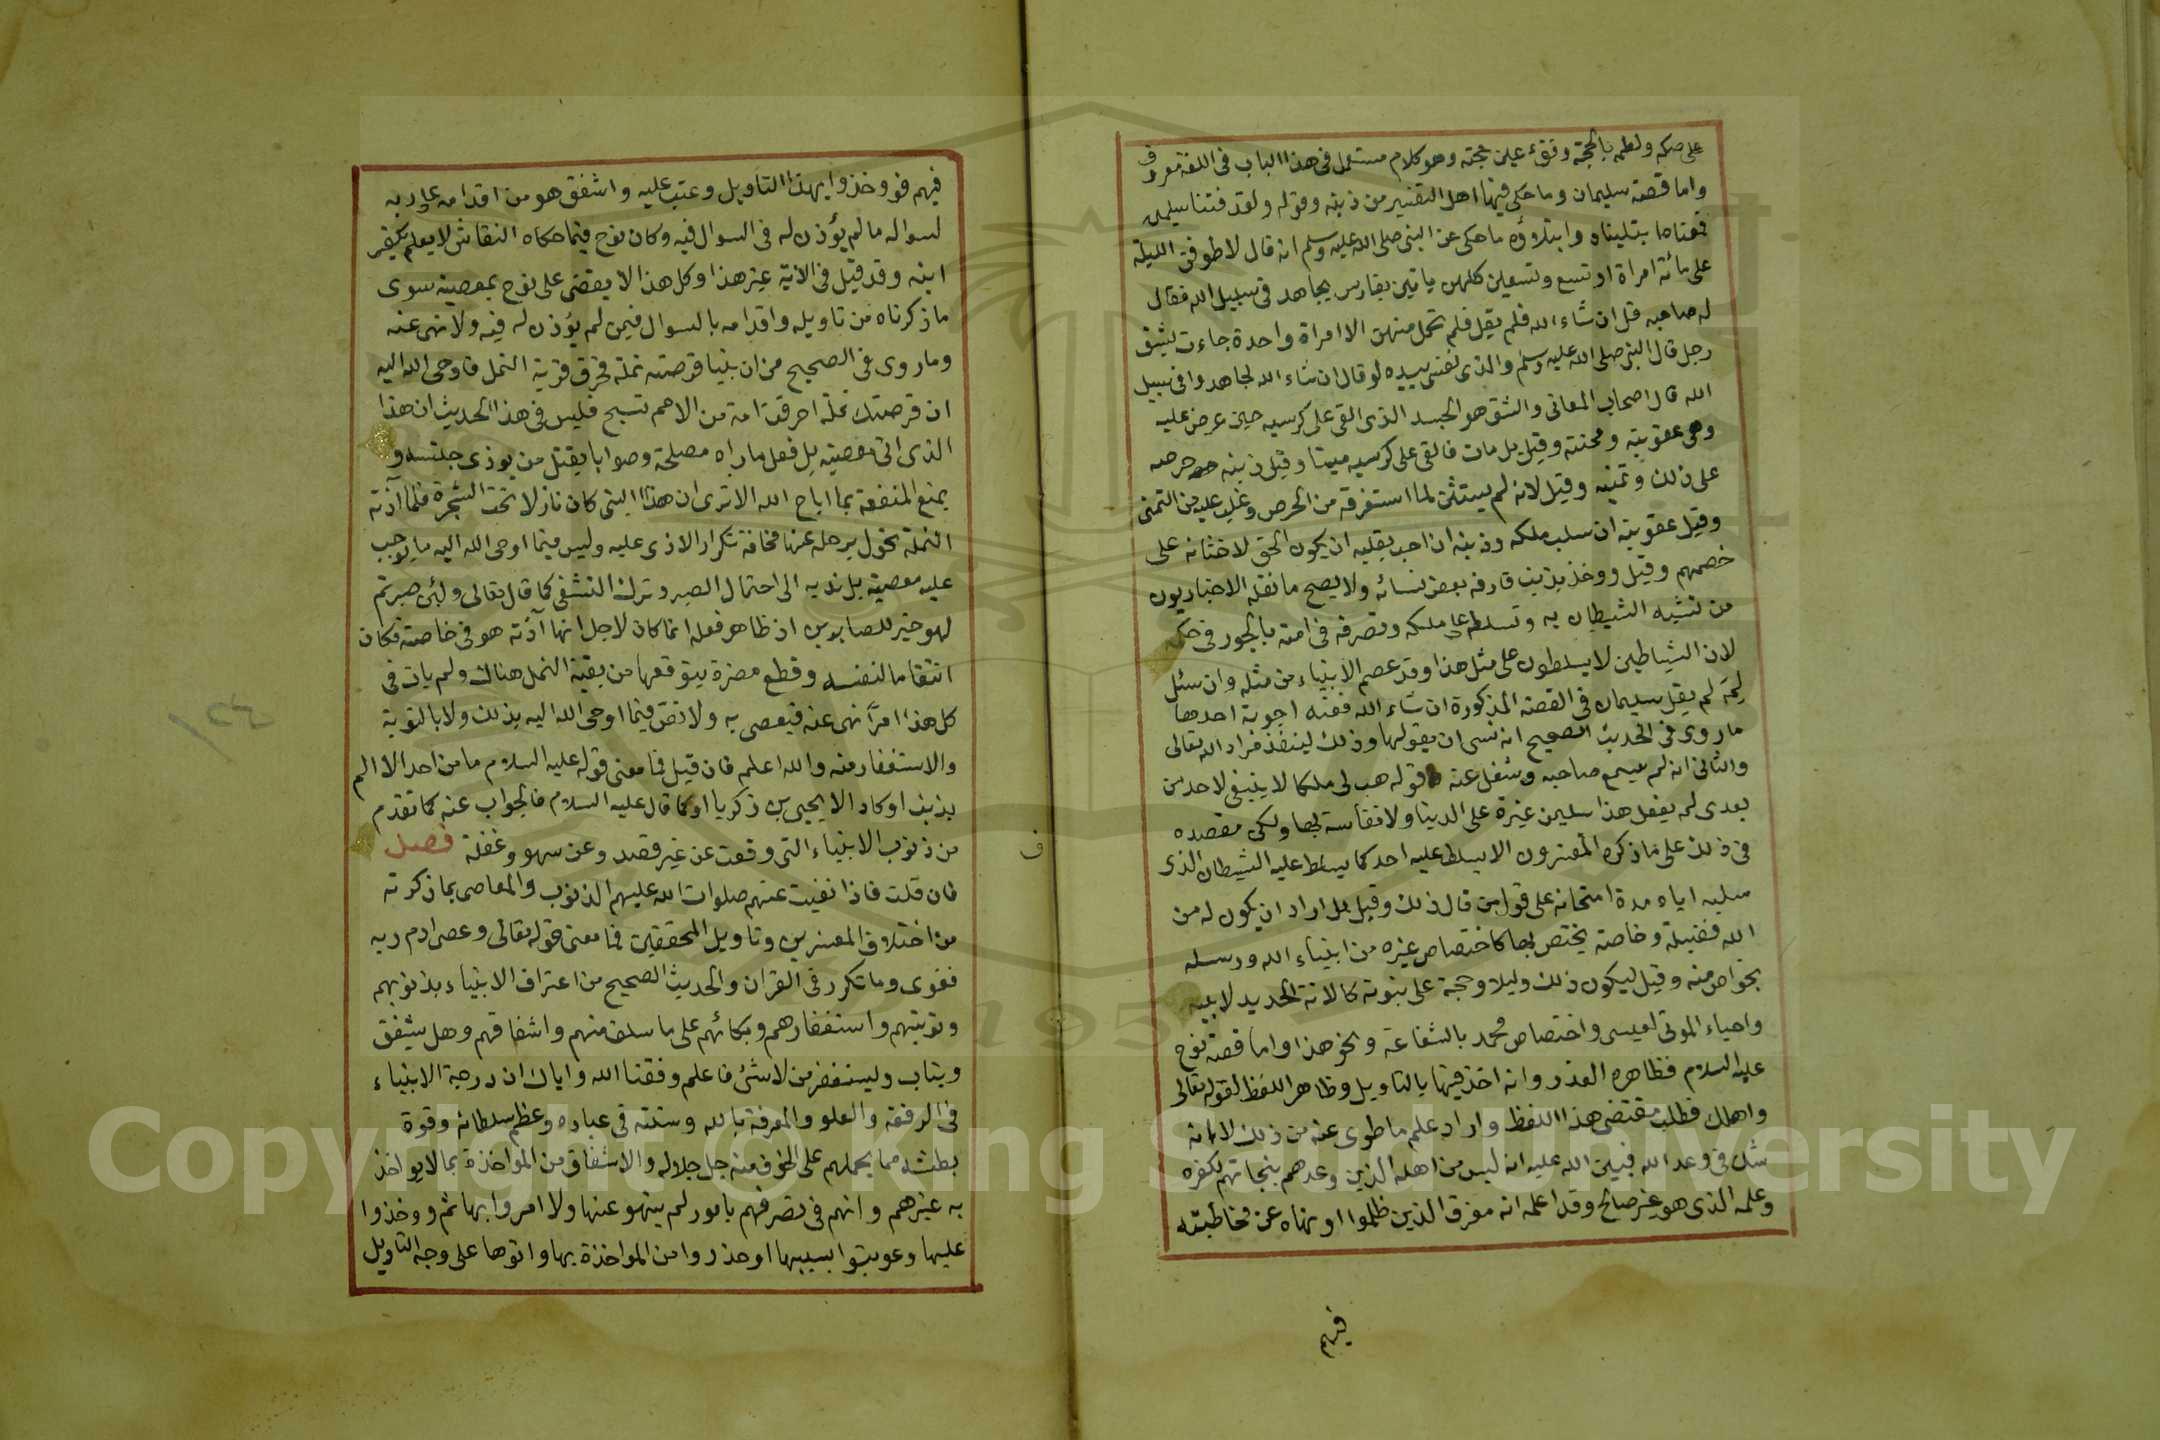 على صكه ولطمه بالحجة وفقء عين حجته وهو كلام مستعمل فى هذا الباب فى اللغة معروف
واما قصة سليمان وما حكى فيها اهل التفسير من ذنبه وقوله ولقد فتنا سليمن
فمعناه ابتليناه وابتلاؤه ما حكى عن النبى صلى الله عليه وسلم انه قال لاطوفن الليلة
على مائة امراة او تسع وتسعين كلهن ياتين بفارس يجاهد فى سبيل الله فقال
له صاحبه قل ان شاء الله فلم يقل فلم تحمل منهن الا امراة واحدة جاءت بشق
رجل قال النبى صلى الله عليه وسلم والذى نفسى بيده لو قال ان شاء الله لجاهدوا فى سبيل
الله قال اصحاب المعانى والشق هو الجسد الذى القى على كرسيه حين عرض عليه
وهى عقوبته ومحنته وقيل بل مات فالقى على كرسيه ميتا وقيل ذنبه حرصه
على ذلك وتمنيه وقيل لانه لم يستثن لما استغرقه من الحرص وغلب عليه من التمنى
وقيل عقوبته ان سلب ملكه وذنبه ان احب بقلبه ان يكون الحق لاختانه على
خصمهم وقيل ووخذ بذنب قارفه بعض نسائه ولا يصح ما نقله الاخباريون
من تشبه الشيطان به وتسلطه على ملكه وتصرفه فى امته بالجور فى حكمه
لان الشياطين لا يسلطون على مثل هذا وقد عصم الانبياء من مثله وان سئل
لم لم يقل سليمان فى القصة المذكورة ان شاء الله ففيه اجوبة احدها
ما روى فى الحديث الصحيح انه نسى ان يقولها وذلك لينفذ مراد الله تعالى
والثانى انه لم يسمع صاحبه وشغل عنه وقوله هب لى ملكا لا ينبغى لاحد من
بعدى لم يفعل هذا سليمن غيرة على الدنيا ولا نفاسة بها ولكن مقصده
فى ذلك على ما ذكره المفسرون الا يسلط عليه احد كما يسلط عليه الشيطان الذى
سلبه اياه مدة امتحانه على قول من قال ذلك وقيل بل اراد ان يكون له من
الله فضيلة وخاصة يختص بها كاختصاص غيره من انبياء الله ورسله
بخواص منه وقيل ليكون ذلك دليلا وحجة على نبوته كالانة الحديد لابيه
واحياء الموتى لعيسى واختصاص محمد بالشفاعة ونحو هذا واما قصة نوح
عليه السلام فظاهره العذر وانه اخذ فيها بالتاويل وظاهر اللفظ لقوله تعالى
واهلك فطلب مقتضى هذا اللفظ واراد علم ما طوى عنه من ذلك لا انه
شك فى وعد الله فبين الله عليه انه ليس من اهله الذين وعدهم بنجاتهم لكفره
وعلمه الذى هو غير صالح وقد اعلمه انه مغرق الذين ظلموا ونهاه عن مخاطبته
فيهم
فيهم فووخذوا بهذا التاويل وعتب عليه واشفق هو من اقدامه على ربه
لسواله ما لم يؤذن له فى السوال فيه وكان نوح فيما حكاه النقاش لا يعلم بكفر
ابنه وقد قيل فى الاية غير هذا وكل هذا لا يقضى على نوح بمعصية سوى
ما ذكرناه من تاويله واقدامه بالسوال فيمن لم يؤذن له فيه ولا نهى عنه
وما روى فى الصحيح من ان نبيا قرصته نملة فحرق قرية النمل فاوحى الله اليه
ان قرصتك نملة احرقت امة من الامم تسبح فليس فى هذا الحديث ان هذا
الذى اتى معصية بل فعل ما راه مصلحة وصوابا بقتل من يوذى جنسه و
يمنع المنفعة بما اباح الله الا ترى ان هذا النبى كان نازلا تحت الشجرة فلما آذته
النملة تحول برحله عنها مخافة تكرار الاذى عليه وليس فيما اوحى الله اليه ما يوجب
عليه معصية بل ندبه الى احتمال الصبر وترك التشفى كما قال تعالى ولئن صبرتم
لهو خير للصابرين اذ ظاهر فعله انما كان لاجل انها آذته هو فى خاصته فكان
انتقاما لنفسه وقطع مضرة يتوقعها من بقية النمل هناك ولم يات فى
كل هذا امرا نهى عنه فيعصى به ولا نص فيما اوحى الله اليه بذلك ولا بالتوبة
والاستغفار منه والله اعلم فان قيل فما معنى قوله عليه السلام ما من احد الا الم
بذنب او كاد الا يحيى بن زكريا او كما قال عليه السلام فالجواب عنه كما تقدم
من ذنوب الانبياء التى وقعت عن غير قصد وعن سهو وغفلة فصل
فان قلت فاذا نفيت عنهم صلوات الله عليهم الذنوب والمعاصى بما ذكرته
من اختلاف المفسرين وتاويل المحققين فما معنى قوله تعالى وعصى ادم ربه
فغوى وما تكرر فى القران والحديث الصحيح من اعتراف الانبياء بذنوبهم
وتوبتهم واستغفارهم وبكائهم على ما سلف منهم واشفاقهم وهل يشفق
ويتاب ويستغفر من لا شئ فاعلم وفقنا الله واياك ان درجة الانبياء
فى الرفعة والعلو والمعرفة بالله وسنته فى عباده وعظم سلطانه وقوة
بطشه مما يحملهم على الخوف منه جل جلاله والاشفاق من المواخذة بما لا يواخذ
به غيرهم وانهم فى تصرفهم بامور لم ينهو عنها ولا امروا بها ثم ووخذوا
عليها وعوتبوا بسببها او حذروا من المواخذة بها واتوها على وجه التاويل
ف
١٢٤
1957
Copyright © King Saud University